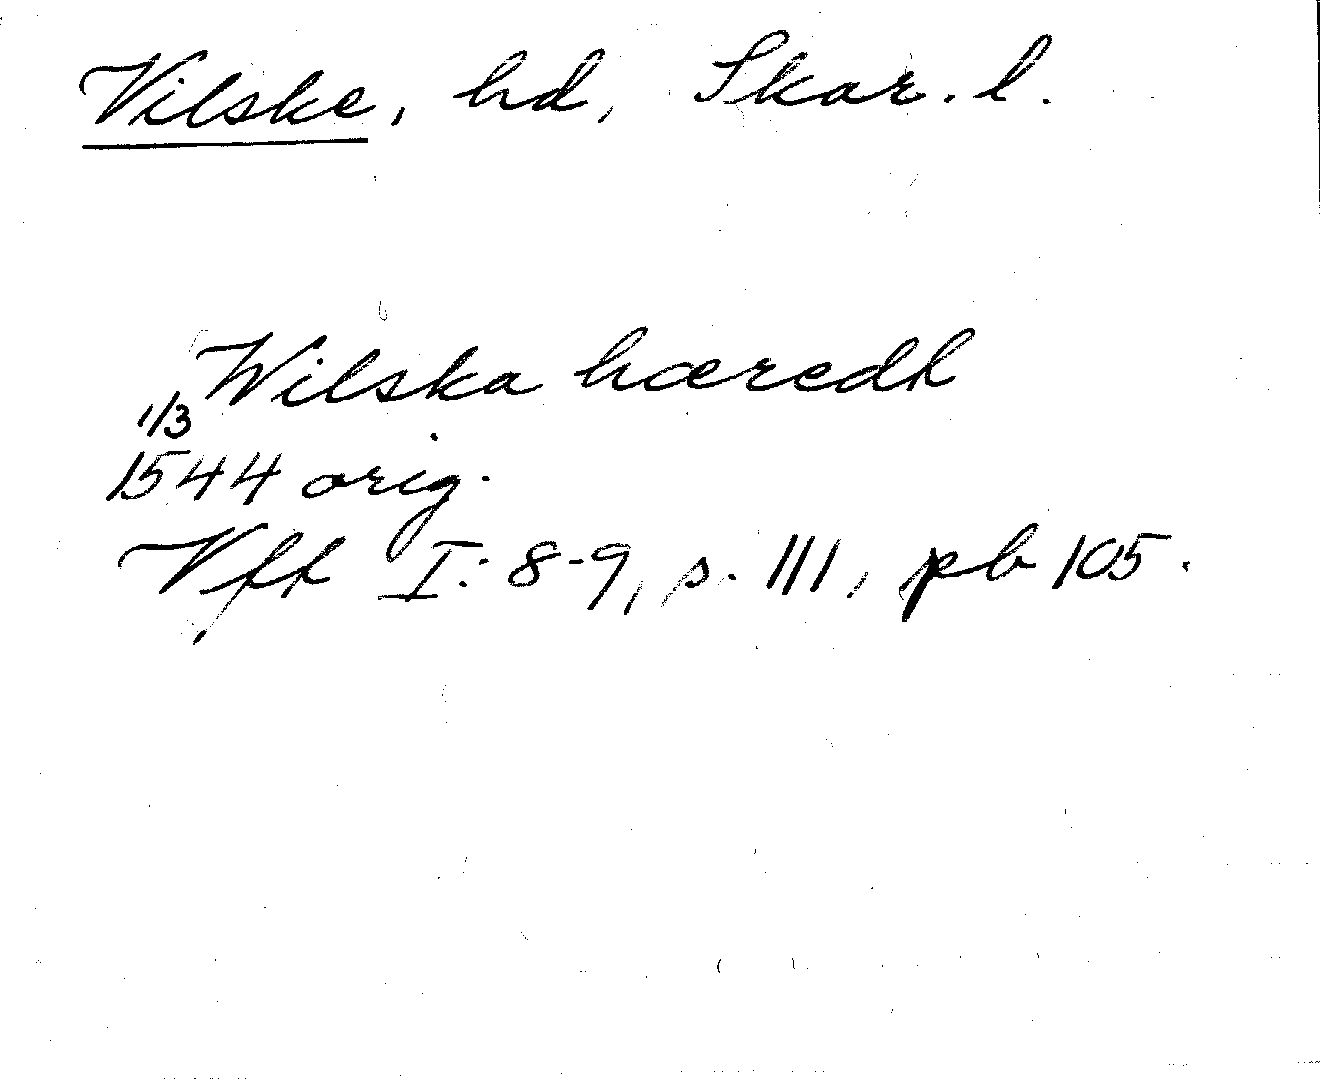 Vilske, hd, Skar. l.
Wilska hæredh
1/3
1544 orig.
Vff I: 8-9, s. 111, pb 105.